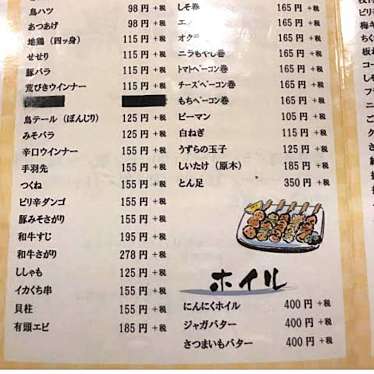 鳥ハツ 98円 +税
あつあげ 98円 +税
地鶏(四ッ身) 115円 +税
せせり 115円 +税
豚バラ 115円 +税
荒びきウインナー 115円 +税
鳥テール(ぼんじり) 125円 +税
みそバラ 125円 +税
辛口ウインナー 155円 +税
手羽先 155円 +税
つくね 155円 +税
ピリ辛ダンゴ 155円 +税
豚みそさがり 155円 +税
和牛すじ 195円 +税
和牛さがり 278円 +税
ししゃも 125円 +税
イカくち串 155円 +税
貝柱 155円 +税
有頭エビ 185円 +税
しそ巻 165円 +税
165円 +税
オク 165円 +税
ニラもやし巻 165円 +税
トマトベーコン巻 165円 +税
チーズベーコン巻 165円 +税
もちベーコン巻 165円 +税
ピーマン 105円 +税
白ねぎ 115円 +税
うずらの玉子 125円 +税
しいたけ(原木) 185円 +税
とん足 350円 +税
ホイル
にんにくホイル 400円 +税
ジャガバター 400円 +税
さつまいもバター 400円 +税